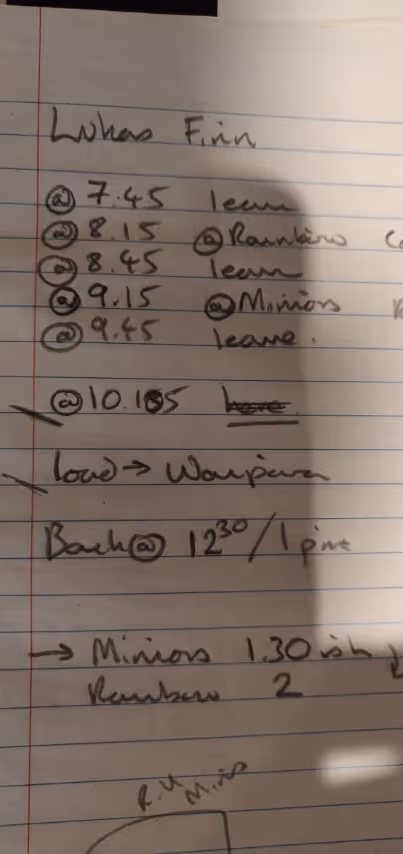 Lukas Finn
@ 7.45 leave
@ 8.15 @ Rainbow
@ 8.45 leave
@ 9.15 @ Minions
@ 9.45 leave.
@ 10.15
load → Waipara
Back @ 12³⁰/1 pm
→ Minions 1.30 ish
Rainbow 2